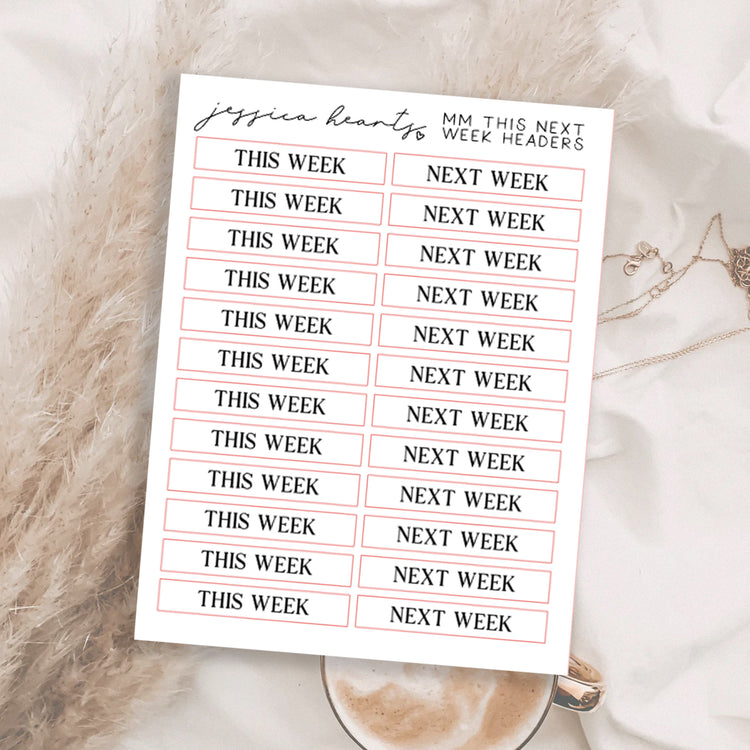 jessica hearts
MM THIS NEXT
WEEK HEADERS
THIS WEEK NEXT WEEK
THIS WEEK NEXT WEEK
THIS WEEK NEXT WEEK
THIS WEEK NEXT WEEK
THIS WEEK NEXT WEEK
THIS WEEK NEXT WEEK
THIS WEEK NEXT WEEK
THIS WEEK NEXT WEEK
THIS WEEK NEXT WEEK
THIS WEEK NEXT WEEK
THIS WEEK NEXT WEEK
THIS WEEK NEXT WEEK